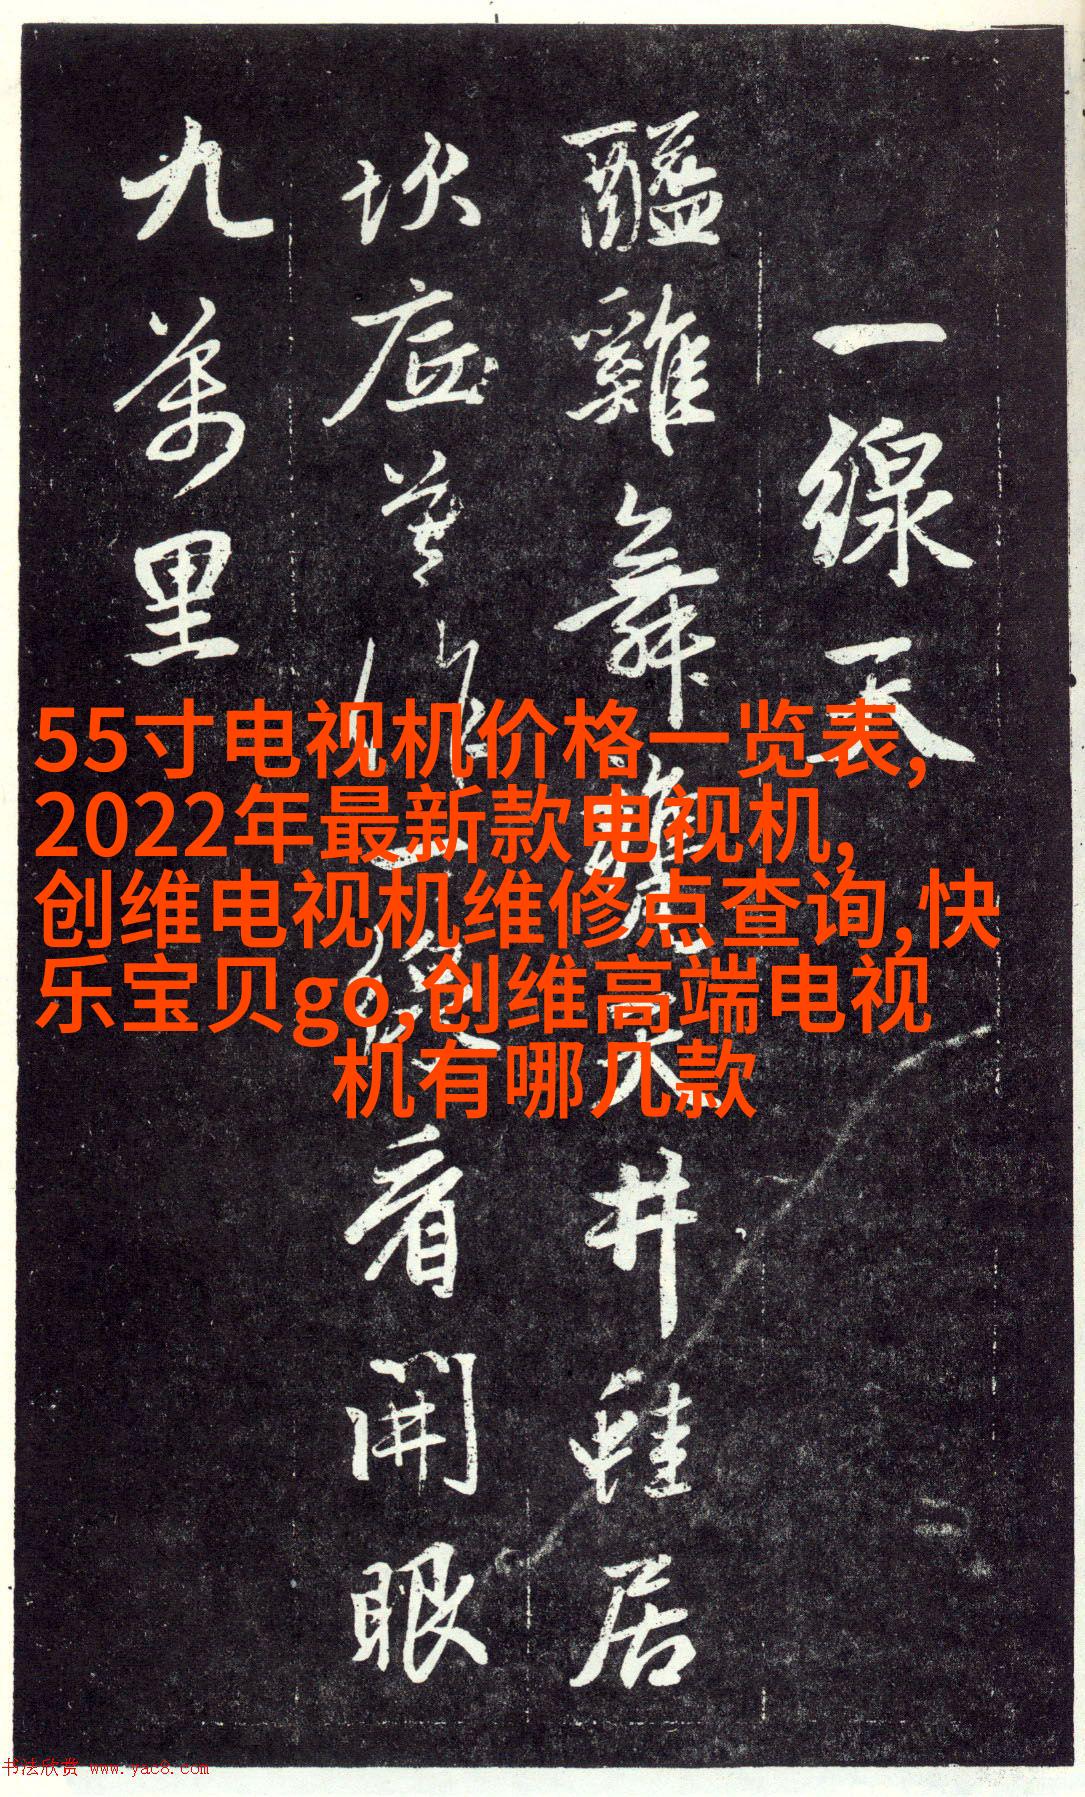 一線天
醯雞舞甕天井蛙居
坎底莫作一線看開眼
九萬里
55寸电视机价格一览表,
2022年最新款电视机,
创维电视机维修点查询,快
乐宝贝go,创维高端电视
机有哪几款
书法欣赏 www.yac8.com